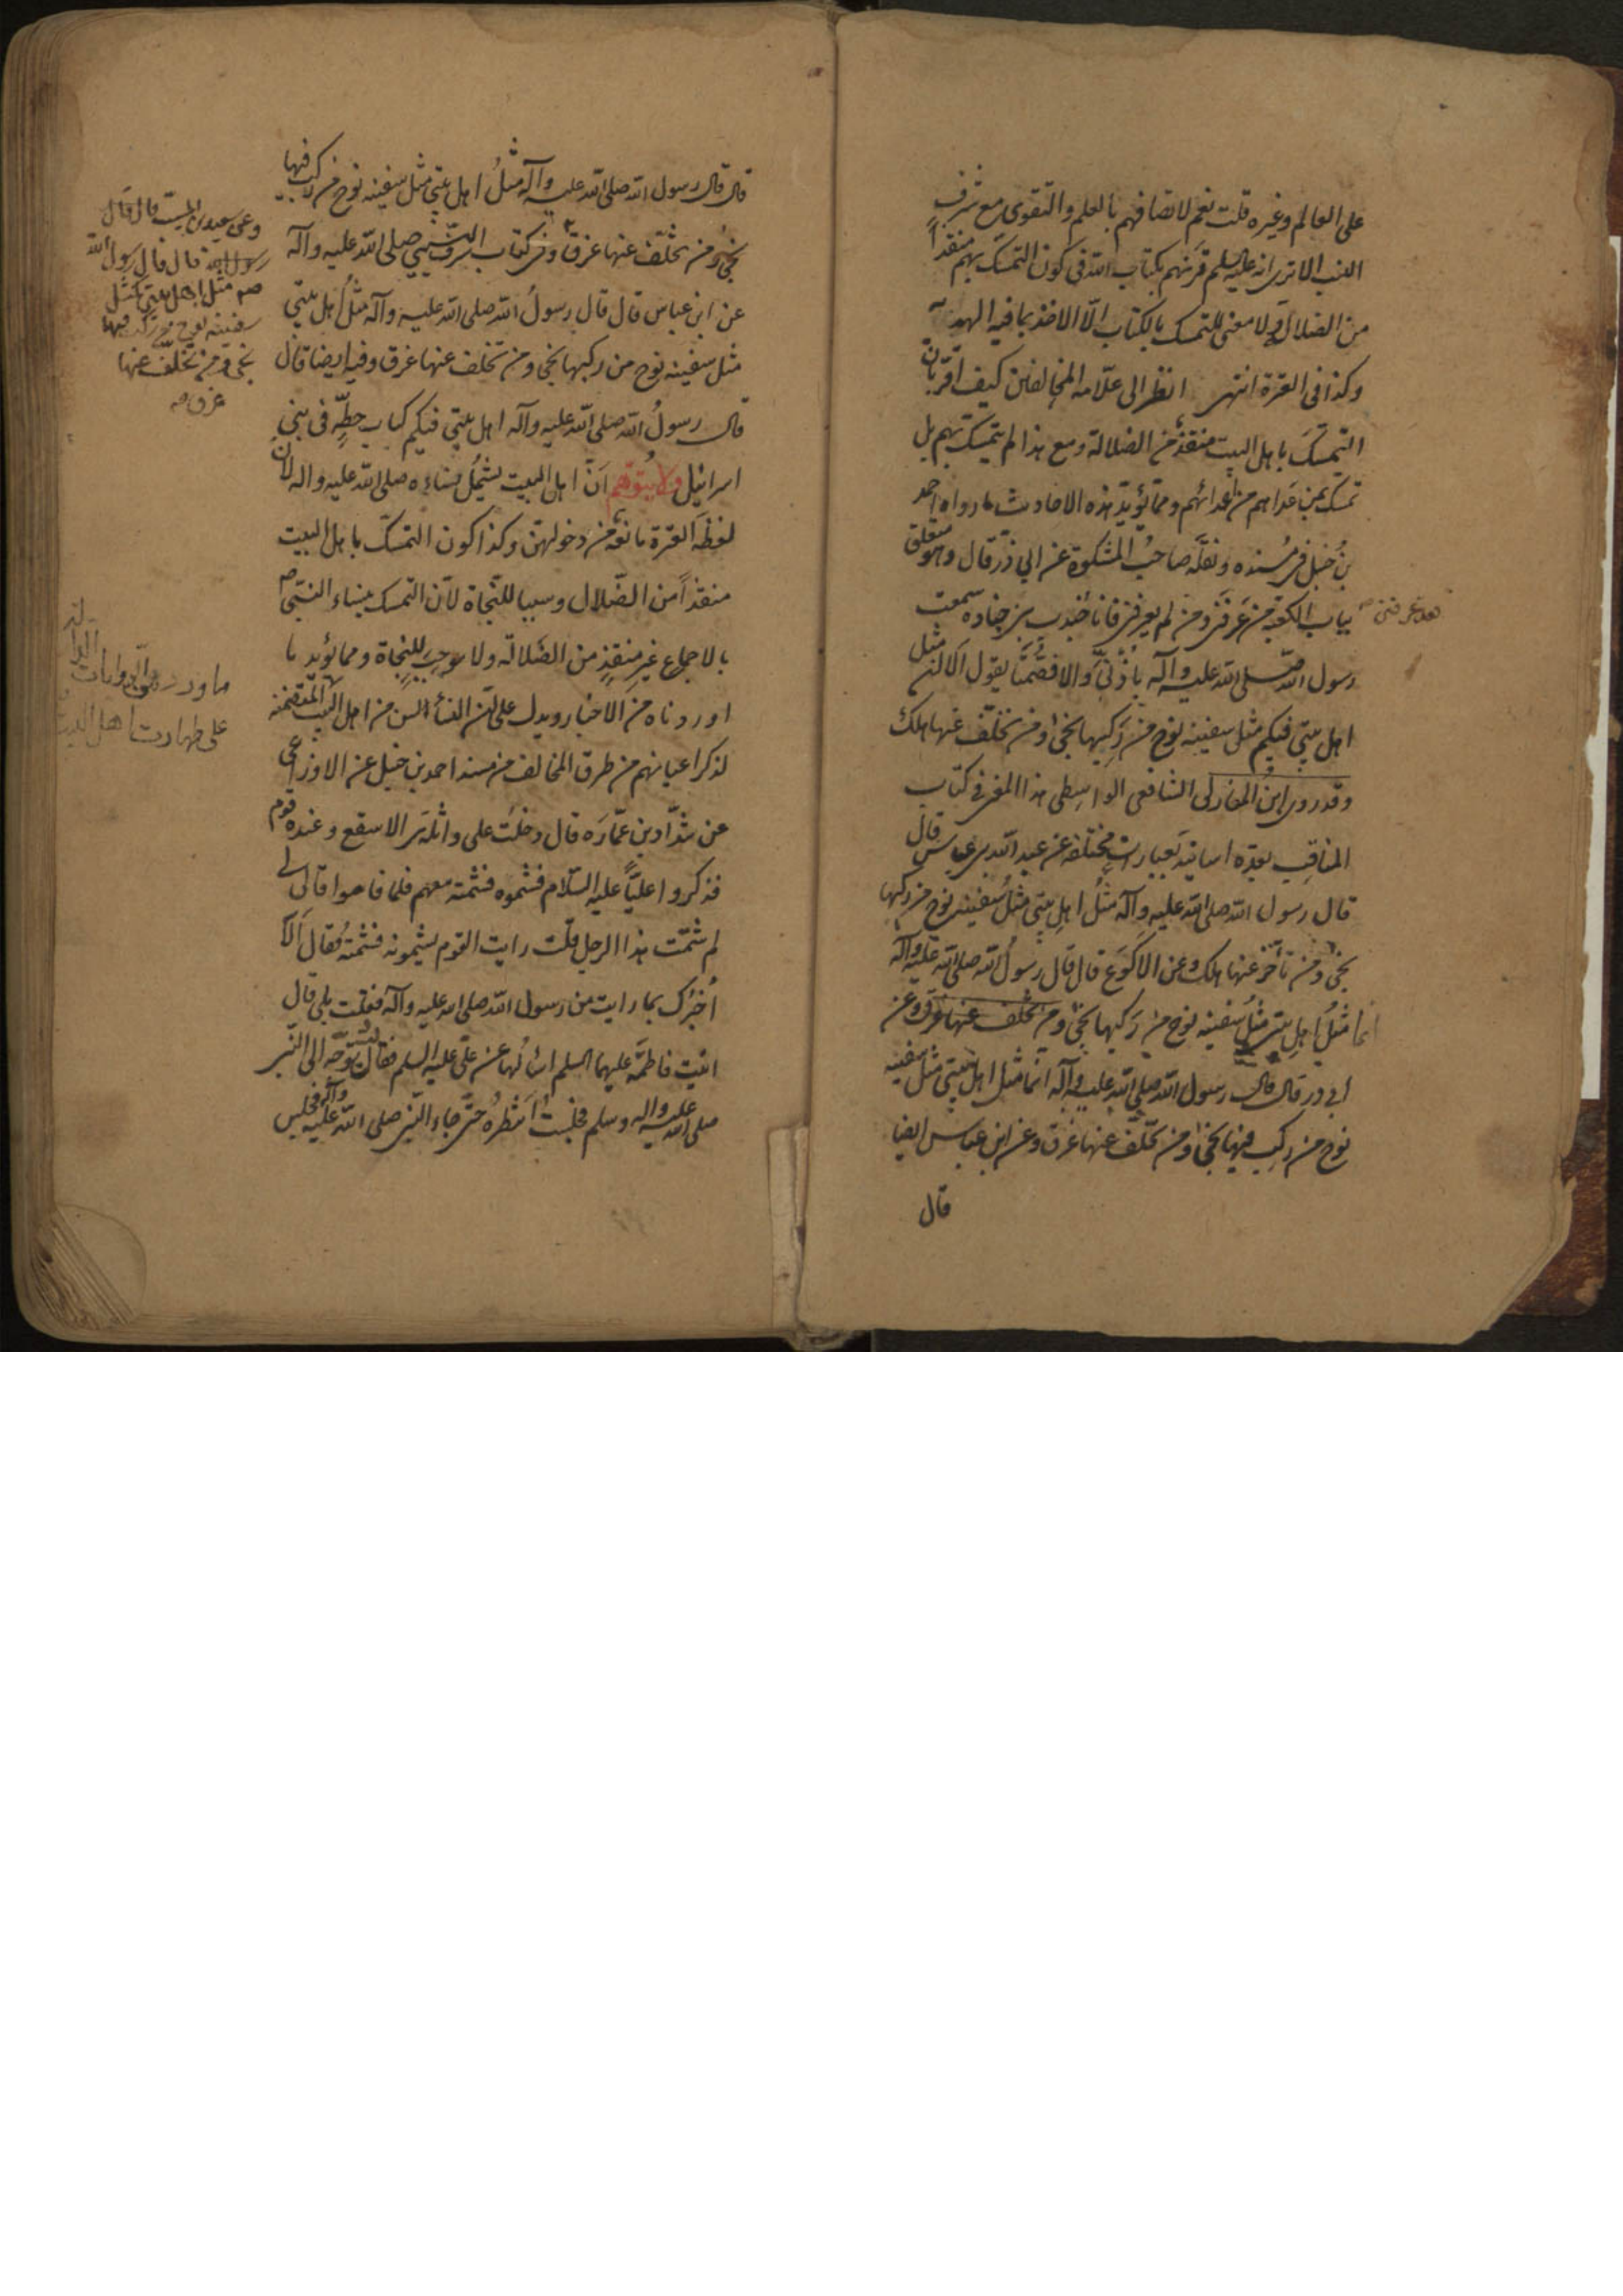 على العالم وغيره قلت نعم لاتصافهم بالعلم والتقوى مع شرف
النسب الا ترى انه عليه السلم قرنهم بكتاب الله فى كون التمسك بهم منقذاً
من الضلال ولا معنى للتمسك بالكتاب الّا الاخذ بما فيه الهدية
وكذا فى العترة انتهى انظر الى علّامه المخالفين كيف اقرّ بأن
التمسّك باهل البيت منقذ من الضلالة ومع هذا لم يتمسك بهم بل
تمسك بمن عداهم من اعدائهم وممّا يؤيّد هذه الاحاديث ما رواه احمد
بن حنبل فى مُسنده ونقله صاحبُ المشكوة عن ابي ذر قال وهو متعلق
بباب الكعبة من عَرفَنى ومن لم يعرفنى فانا جُندب بن جناده سمعت
فقد عرفنى صح
رسول الله صلى الله عليه وآله بأذنيّ والا فصُمّتا يقول ألا ان مثل
اهل بيتي فيكم مثل سفينة نوح من رَكبها نجى ومن تخلّف عنها هلك
وقد روى ابن المغازلى الشافعى الواسِطى هذا المعنى في كتاب
المناقب بعدّه اسانيد بعبارات مختلفه عن عبد الله بن عباس قال
قال رسول الله صلى الله عليه وآله مثلُ اهل بيتي مثلُ سفينة نوح من ركبها
نجى ومن تأخر عنها هلك وعن الاكوَع قال قال رسولُ الله صلى الله عليه وآله
انما مثلُ اهل بيتي مثلُ سفينه نوح من رَكبها نجى ومن تخلف عنها غرق وعن
ابى ذر قال قال رسول الله صلى الله عليه وآله انما مثل اهل بيتي مثل سفينه
نوح من ركب فيها نجى ومن تخلّف عنها غرق وعن ابن عباس ايضا
قال
قال قال رسول الله صلى الله عليه وآله مثلُ اهل بيتي مثل سفينه نوح من ركب فيها
نجى ومن تخلّف عنها غرق وفى كتاب الشرف النبي صلى الله عليه وآله
عن ابن عباس قال قال رسولُ الله صلى الله عليه وآله مثلُ اهل بيتي
مثل سفينه نوح من ركبها نجى ومن تخلف عنها غرق وفيه ايضا قال
قال رسولُ الله صلى الله عليه وآله اهل بيتي فيكم كباب حطّةٍ فى بنى
اسرائيل ولا يتوهّم انّ اهل البيت يشمُل نساءه صلى الله عليه واله لأن
لفظَ العترة مانعةٌ من دخولهنّ وكذا كون التمسّك باهل البيت
منقذاً من الضّلال وسببا للنّجاة لأن التمسك بنساء النبي ص
بالاجماع غير منقِذٍ من الضّلالة ولا موجبٍ للنجاة ومما يؤيد ما
اوردناه من الاخبار ويدل على ان النساء لسن من اهل البيت المتضمنة
لذكر اعيانهم من طرق المخالف من مسند احمد بن حنبل عن الاوزاعى
عن شدّاد بن عمّارَه قال دخلتُ على واثلة بن الاسقع وعنده قوم
فذكروا عليّاً عليه السّلام فشتموه فشتمته معهم فلما قاموا قال لى
لم شتمت هذا الرجل قلت رايت القوم يشتمونه فشتمتُه فقال ألا
اُخبرك بما رايت من رسول الله صلى الله عليه وآله فقلت بلى قال
اتيت فاطمةَ عليها السلم اسالُها عن علىّ عليه السلم فقالت توجّه الى النّبى
صلى الله عليه واله وسلم فجلست انتظرُه حتّى جاء النّبى صلى الله عليه وآله فجلس
وعن سعيد بن المسيّب قال قال
رسول الله قال قال رسول الله
صم مثل اهل بيتي كمثل
سفينة نوح من ركب فيها
نجى ومن تخلّف عنها
غرق صح
ما ورد من الروايات
على طهارت اهل البيت